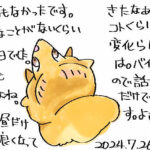 もなかったです。
なことがないくらい
日でした。
よね。
昼だけ
良くなって
きたなあ
コトくらい
変化ら
は。バイ
ので話
だけで
す。
2024.7.26